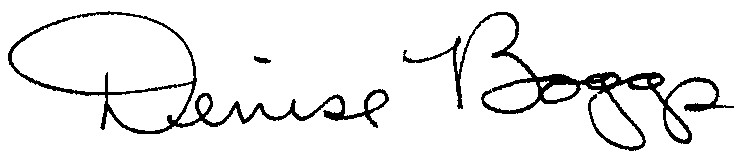 Denise Boggs